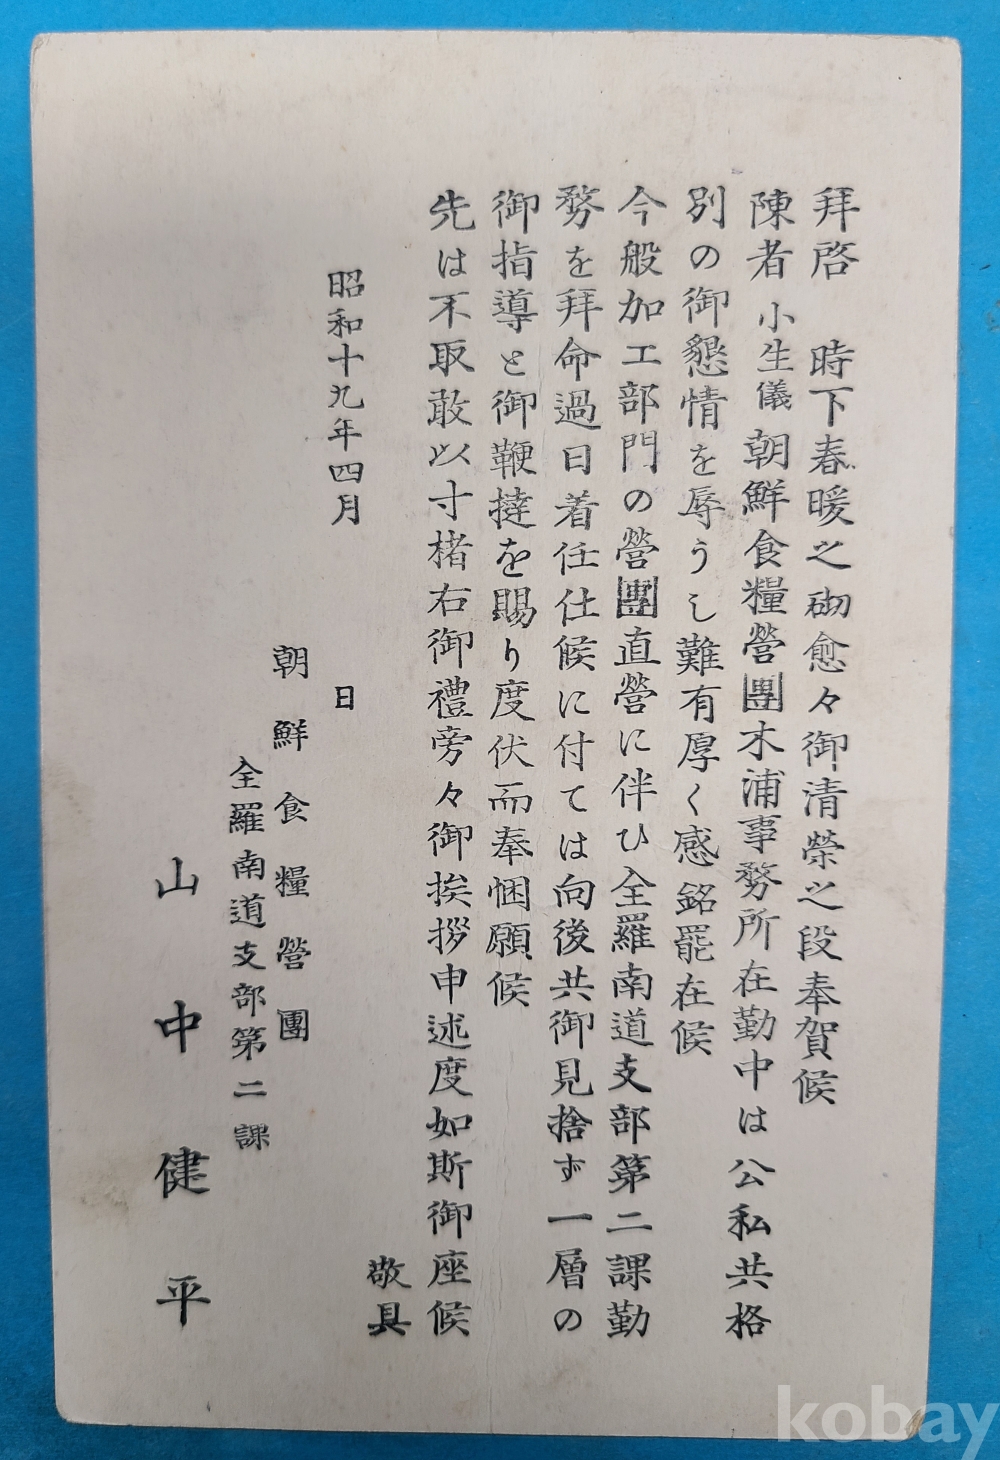 拜啓　時下春暖之砌愈々御清榮之段奉賀候
陳者小生儀朝鮮食糧營團木浦事務所在勤中は公私共格
別の御懇情を辱うし難有厚く感銘罷在候
今般加工部門の營團直營に伴ひ全羅南道支部第二課勤
務を拜命過日着任仕候に付ては向後共御見捨ず一層の
御指導と御鞭撻を賜り度伏而奉悃願候
先は不取敢以寸楮右御禮旁々御挨拶申述度如斯御座候
敬具
昭和十九年四月　日
朝鮮食糧營團
全羅南道支部第二課
山中健平
kobay